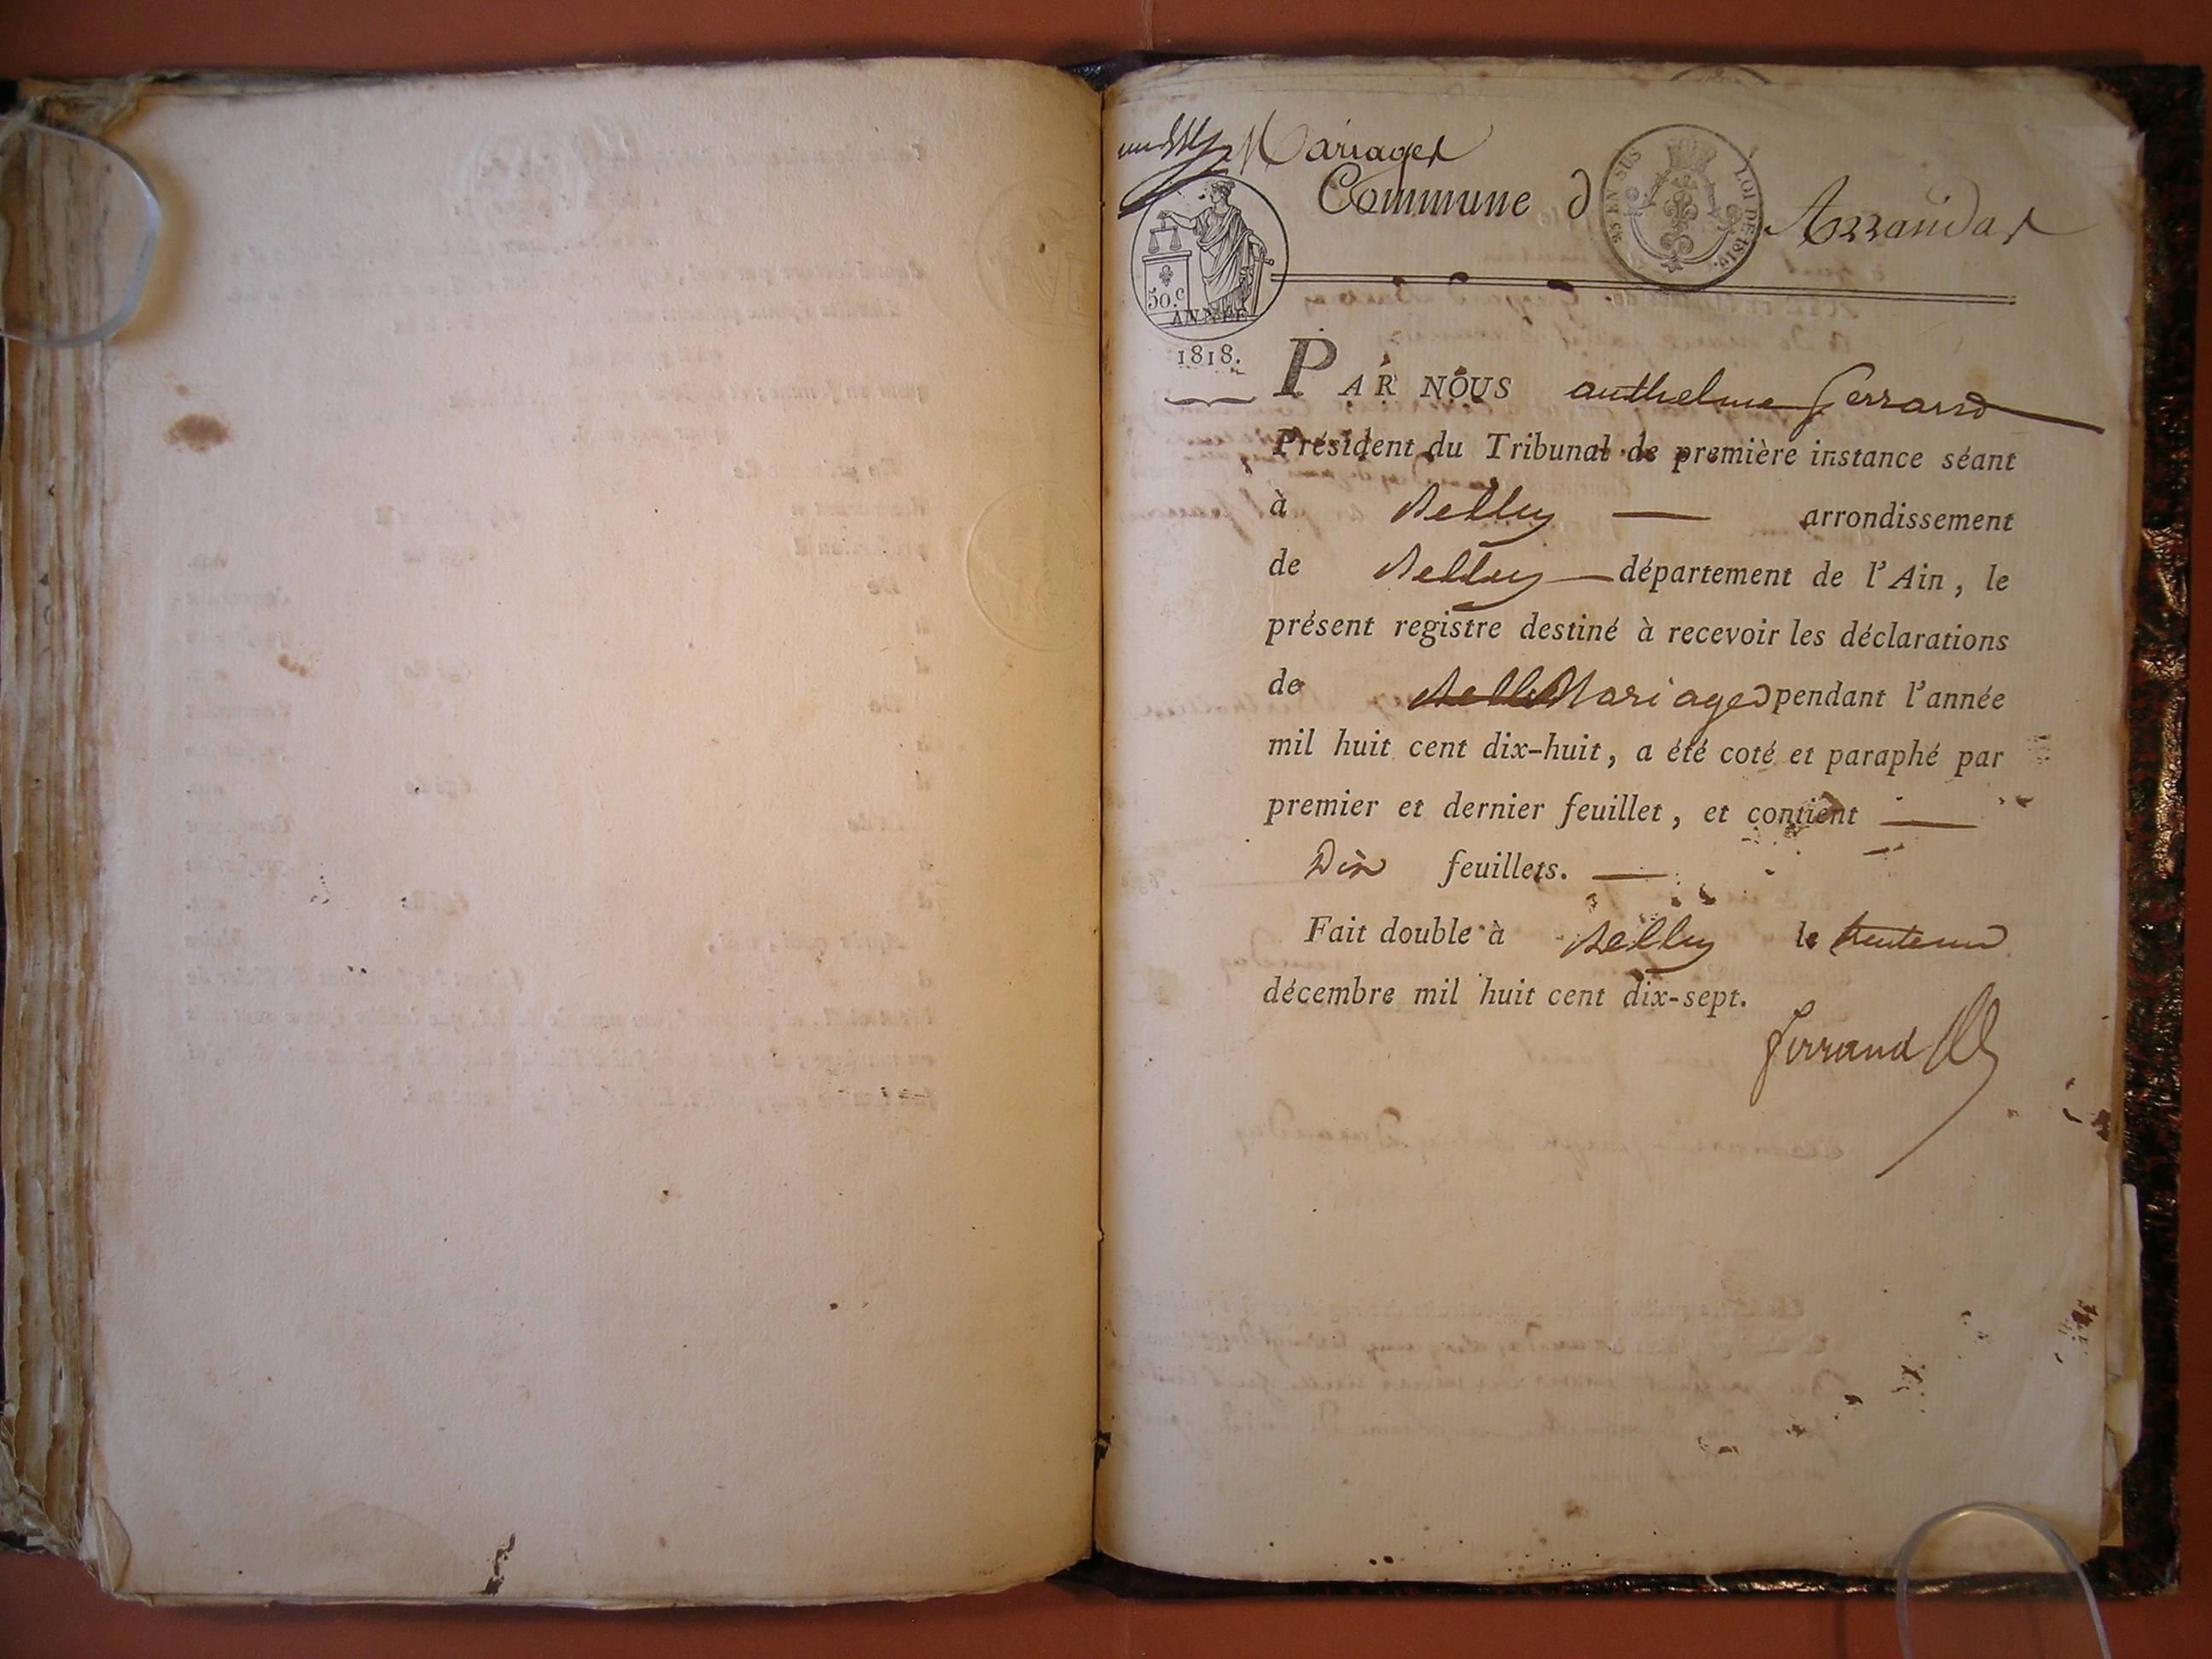 Mariages
Commune d Arrandas
ES EN SUS LOI DE 1816.
50.c
ANNÉE
1818.
PAR NOUS anthelme ferrand
Président du Tribunal de première instance séant
à Belley — arrondissement
de Belley — département de l'Ain, le
présent registre destiné à recevoir les déclarations
de Mariages pendant l'année
mil huit cent dix-huit, a été coté et paraphé par
premier et dernier feuillet, et contient —
Dix feuillets. —
Fait double à Belley le trente un
décembre mil huit cent dix-sept.
ferrand